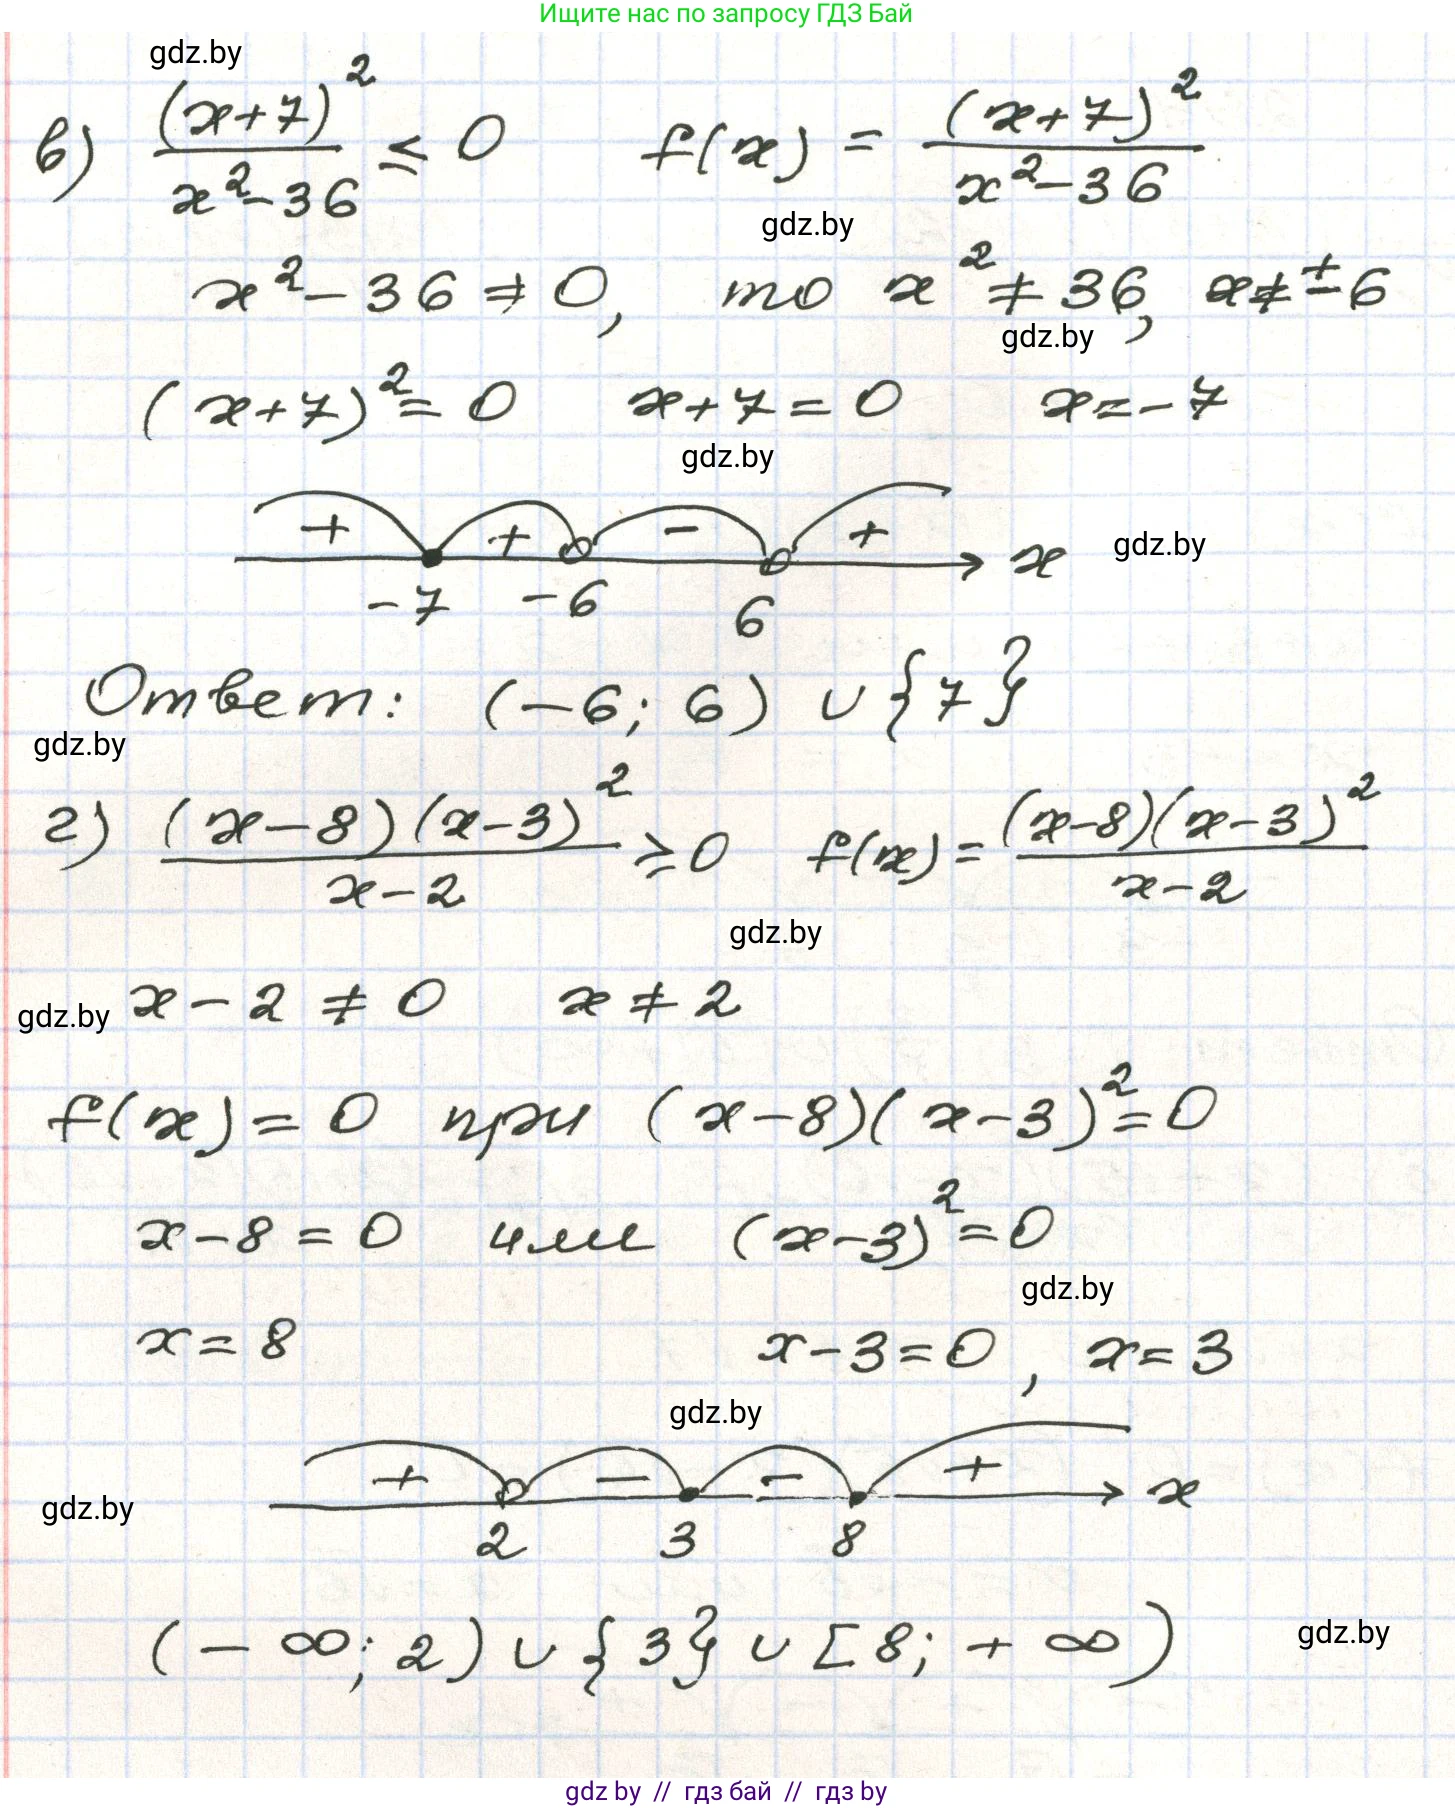 Ищите нас по запросу ГДЗ Бай
gdz.by
в) (x+7)²/(x²-36) ≤ 0 f(x) = (x+7)²/(x²-36)
gdz.by
x²-36 ≠ 0, то x² ≠ 36, x ≠ ±6
gdz.by
(x+7)² = 0 x+7 = 0 x = -7
gdz.by
+ + - + x
gdz.by
-7 -6 6
Ответ: (-6; 6) ∪ {7}
gdz.by
г) (x-8)(x-3)²/(x-2) ≥ 0 f(x) = (x-8)(x-3)²/(x-2)
gdz.by
x - 2 ≠ 0 x ≠ 2
gdz.by
f(x) = 0 при (x-8)(x-3)² = 0
x-8 = 0 или (x-3)² = 0
gdz.by
x = 8 x-3 = 0, x = 3
gdz.by
+ - - + x
gdz.by
2 3 8
(-∞; 2) ∪ {3} ∪ [8; +∞)
gdz.by
gdz by // гдз бай // гдз by